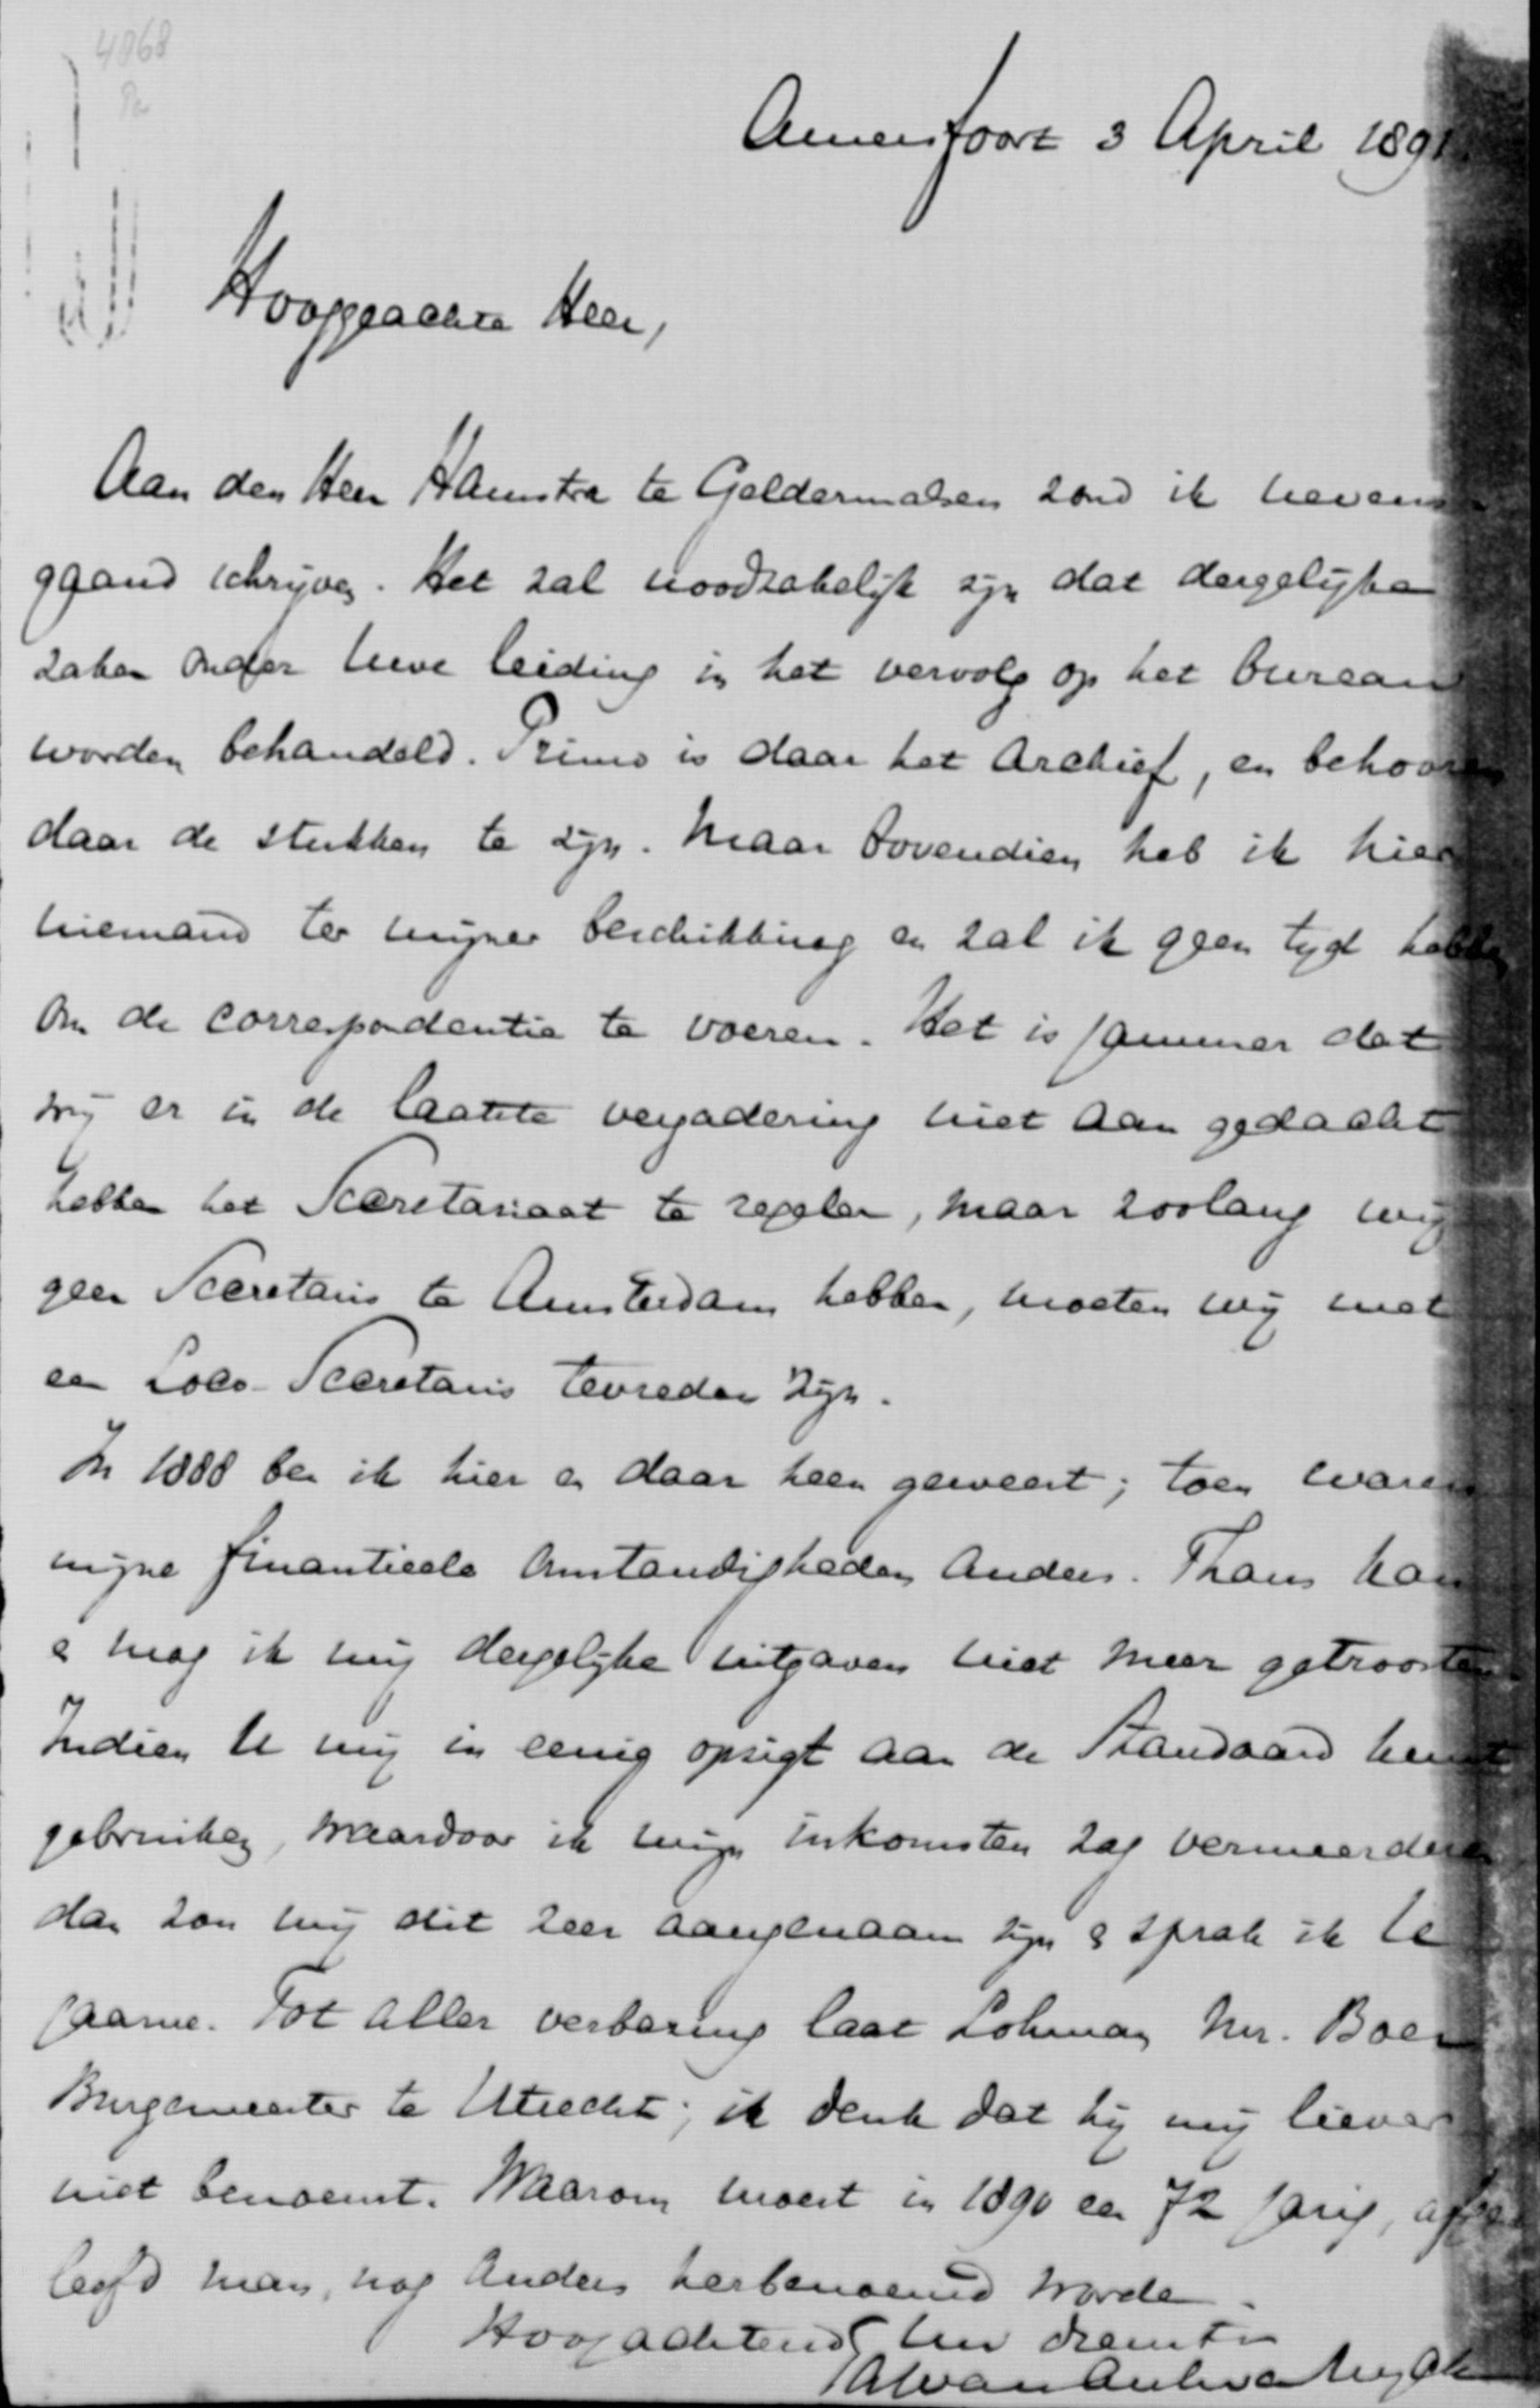 4068
Amersfoort 3 April 1891
Hooggeachte Heer,
Aan den Heer Hamstra te Geldermalsen zond ik nevens
gaand schrijven. Het zal noodzakelijk zijn dat dergelijke
zaken onder Uwe leiding in het vervolg op het bureau
worden behandeld. Primo is daar het Archief, en behooren
daar de stukken te zijn. Maar bovendien heb ik hier
niemand ter mijner beschikking en zal ik geen tijd hebben
om de correspondentie te voeren. Het is jammer dat
wij er in de laatste vergadering niet aan gedacht
hebben het Secretariaat te regelen, maar zoolang wij
geen Secretaris te Amsterdam hebben, moeten wij met
een Loco-Secretaris tevreden zijn.
In 1888 ben ik hier en daar heen geweest; toen waren
mijne finantieele omstandigheden anders. Thans kan
& mag ik mij dergelijke uitgaven niet meer getroosten.
Indien U mij in eenig opzigt aan de Standaard kunt
gebruiken, waardoor ik mijn inkomsten zag vermeerderen
dan zou mij dit zeer aangenaam zijn & sprak ik U
gaarne. Tot aller verbazing laat Lohman Mr. Boer
Burgemeester te Utrecht; ik denk dat hij mij liever
niet benoemt. Waarom moest in 1890 een 72 jarig, afge
leefd man, nog anders herbenoemd worden.
Hoogachtend Uw